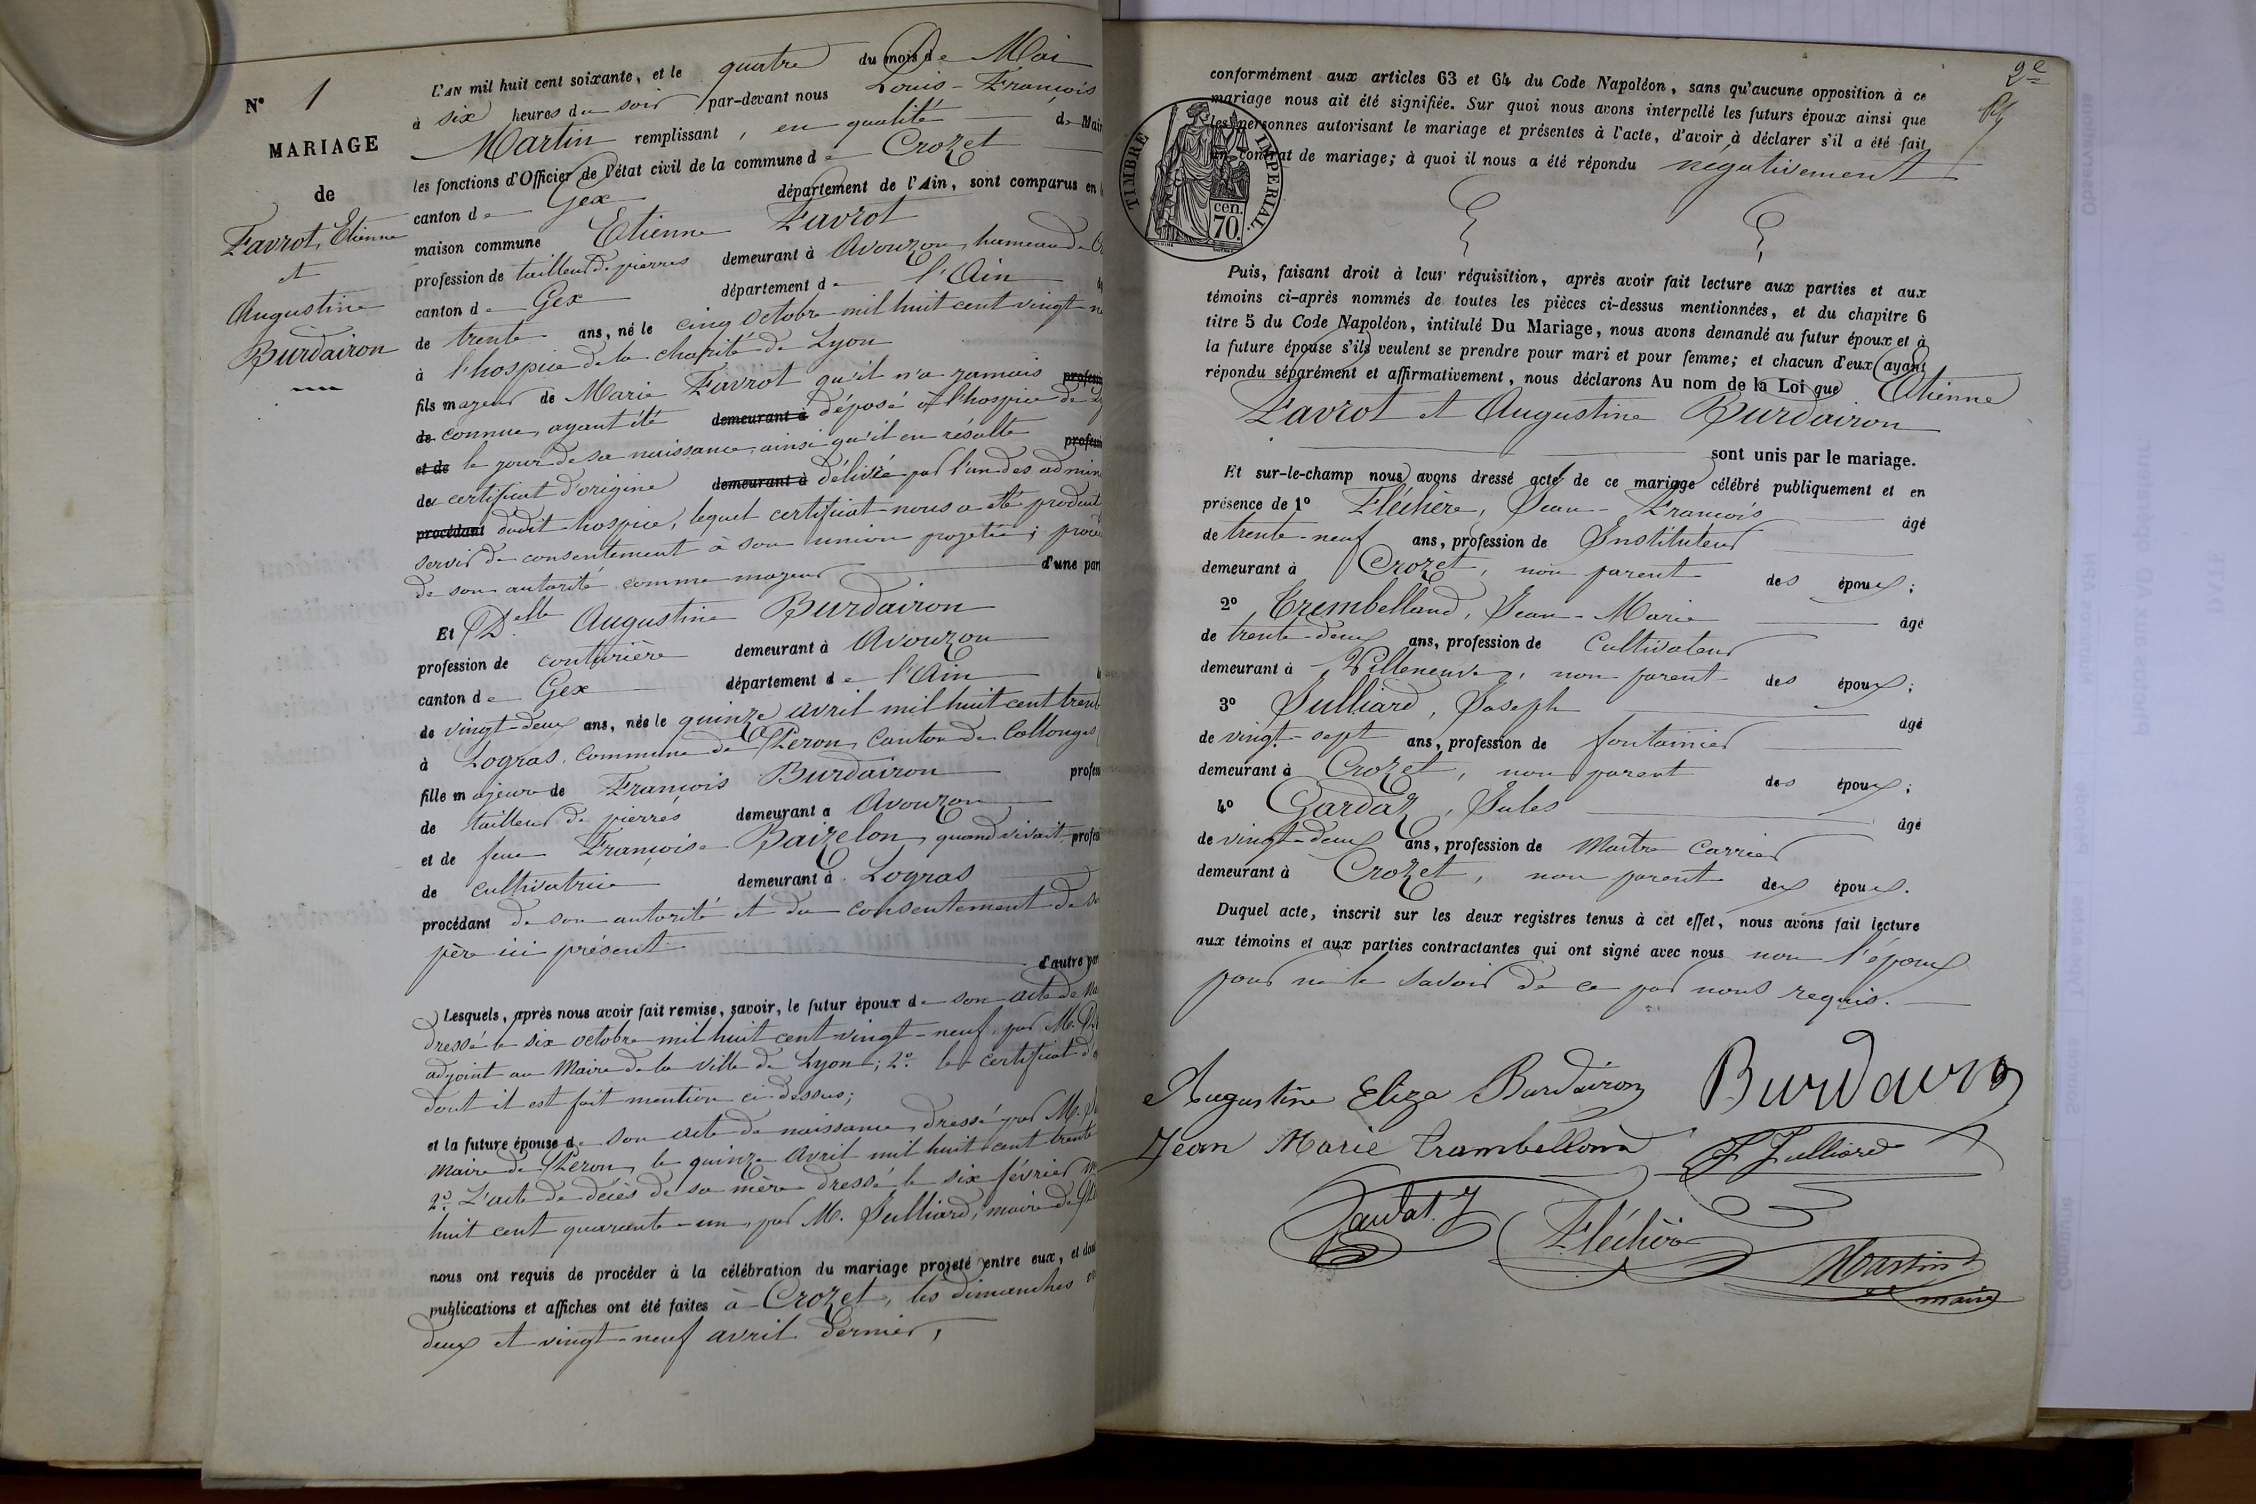 N° 1
MARIAGE
de
Favrot, Etienne
et
Augustine
Burdairon
L'AN mil huit cent soixante, et le quatre du mois de Mai
à six heures du soir par-devant nous Louis-François
Martin remplissant, en qualité de Mair
les fonctions d'Officier de l'état civil de la commune de Crozet
canton de Gex département de l'Ain, sont comparus en
maison commune Etienne Favrot
profession de tailleur de pierres demeurant à Avouzon, hameau de
canton de Gex département de l'Ain
de trente ans, né le cinq octobre mil huit cent vingt-
à l'hospice de la charité de Lyon
fils majeur de Marie Favrot qu'il n'a jamais professi
de connue, ayant été demeurant à déposé à l'hospice de
et de le jour de sa naissance, ainsi qu'il en résulte professi
du certificat d'origine demeurant à délivré par l'un des admin
procédant dudit hospice, lequel certificat nous a été produit
servir de consentement à son union projetée; proc
de son autorité comme majeur d'une par
Et Delle Augustine Burdairon
profession de couturière demeurant à Avouzon
canton de Gex département de l'Ain
de vingt-deux ans, née le quinze avril mil huit cent trent
à Logras, commune de Péron, canton de Collonges
fille majeure de François Burdairon profess
de tailleur de pierres demeurant à Avouzon
et de feue Françoise Baizelon, quand vivait profess
de cultivatrice demeurant à Logras
procédant de son autorité et du consentement de so
père ici présent d'autre par
Lesquels, après nous avoir fait remise, savoir, le futur époux de son acte de na
dressé le six octobre mil huit cent vingt-neuf, par M.
adjoint au Maire de la ville de Lyon; 2° le certificat d'o
dont il est fait mention ci-dessus;
et la future épouse de son acte de naissance, dressé par M.
Maire de Péron, le quinze avril mil huit cent trente
2° L'acte de décès de sa mère dressé le six février
huit cent quarante-un, par M. Julliard, maire de
nous ont requis de procéder à la célébration du mariage projeté entre eux, et don
publications et affiches ont été faites à Crozet, les dimanches
deux et vingt-neuf avril dernier,
2e
conformément aux articles 63 et 64 du Code Napoléon, sans qu'aucune opposition à ce
mariage nous ait été signifiée. Sur quoi nous avons interpellé les futurs époux ainsi que
les personnes autorisant le mariage et présentes à l'acte, d'avoir à déclarer s'il a été fait
un contrat de mariage; à quoi il nous a été répondu négativement
TIMBRE IMPÉRIAL
70 cen.
Puis, faisant droit à leur réquisition, après avoir fait lecture aux parties et aux
témoins ci-après nommés de toutes les pièces ci-dessus mentionnées, et du chapitre 6
titre 5 du Code Napoléon, intitulé Du Mariage, nous avons demandé au futur époux et à
la future épouse s'ils veulent se prendre pour mari et pour femme; et chacun d'eux ayant
répondu séparément et affirmativement, nous déclarons Au nom de la Loi que Etienne
Favrot et Augustine Burdairon
sont unis par le mariage.
Et sur-le-champ nous avons dressé acte de ce mariage célébré publiquement et en
présence de 1° Fléchère, Jean-François âgé
de trente-neuf ans, profession de Instituteur
demeurant à Crozet, non parent des époux;
2° Trembelland, Jean-Marie âgé
de trente-deux ans, profession de cultivateur
demeurant à Villeneuve, non parent des époux;
3° Julliard, Joseph âgé
de vingt-sept ans, profession de fontainier
demeurant à Crozet, non parent des époux;
4° Gardaz, Jules âgé
de vingt-deux ans, profession de Maître carrier
demeurant à Crozet, non parent des époux.
Duquel acte, inscrit sur les deux registres tenus à cet effet, nous avons fait lecture
aux témoins et aux parties contractantes qui ont signé avec nous non l'époux
pour ne le savoir de ce par nous requis.
Augustine Eliza Burdairon Burdairon
Jean Marie Trambelland J Julliard
Fléchère
Martin
maire